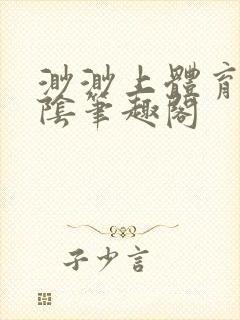 渺渺上體育
陰筆趣閣
子少言